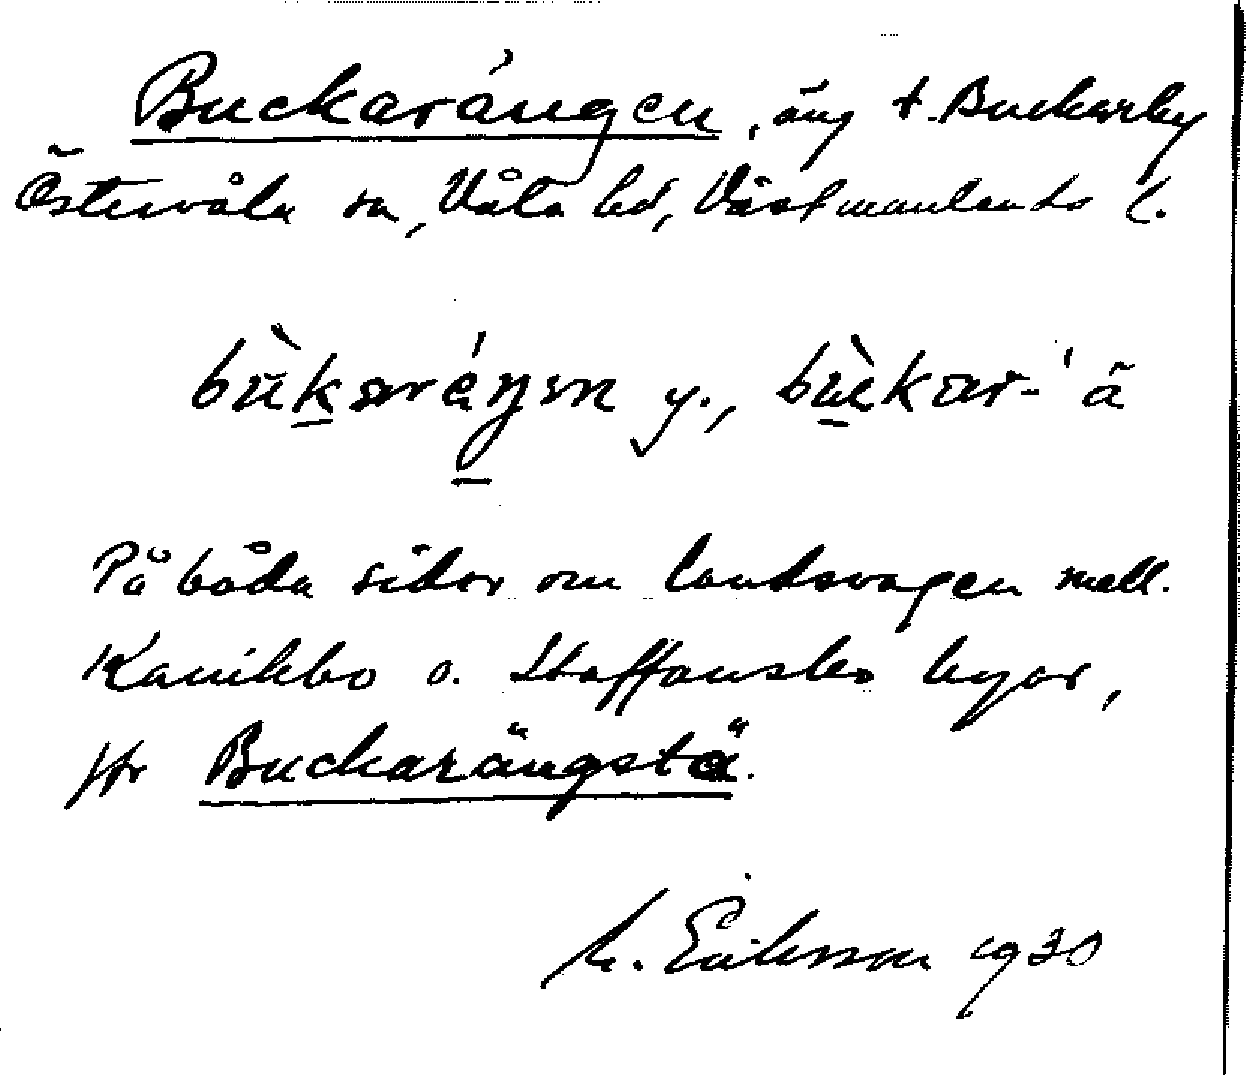 Buckarängen, äng t. Buckarby
Östervåla sn, Våla hd, Västmanlands l.
bùkaráŋen y., bùkar-'ä
På båda sidor om landsvägen mell.
Kanikbo o. Staffansbo byar,
jfr Buckarängstä.
M. Eriksson 1930